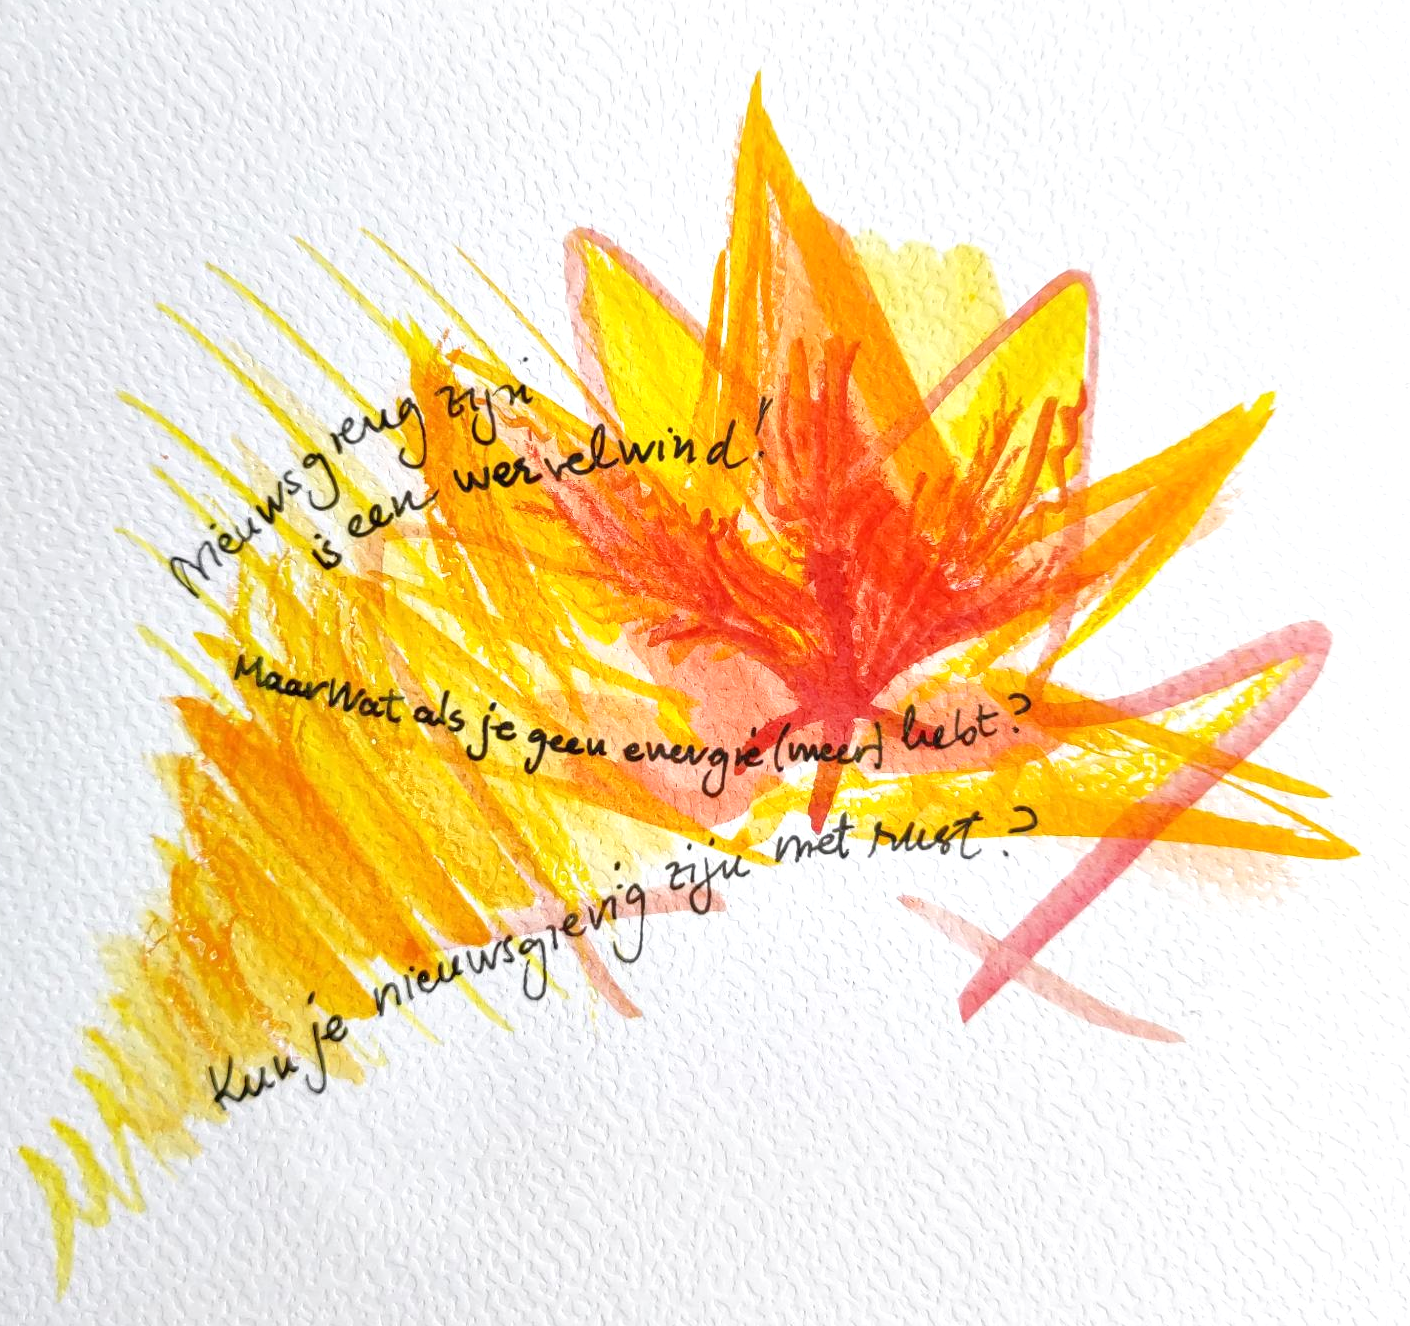 Nieuwsgierig zijn
is een wervelwind!
Maar wat als je geen energie (meer) hebt?
Kun je nieuwsgierig zijn met rust?